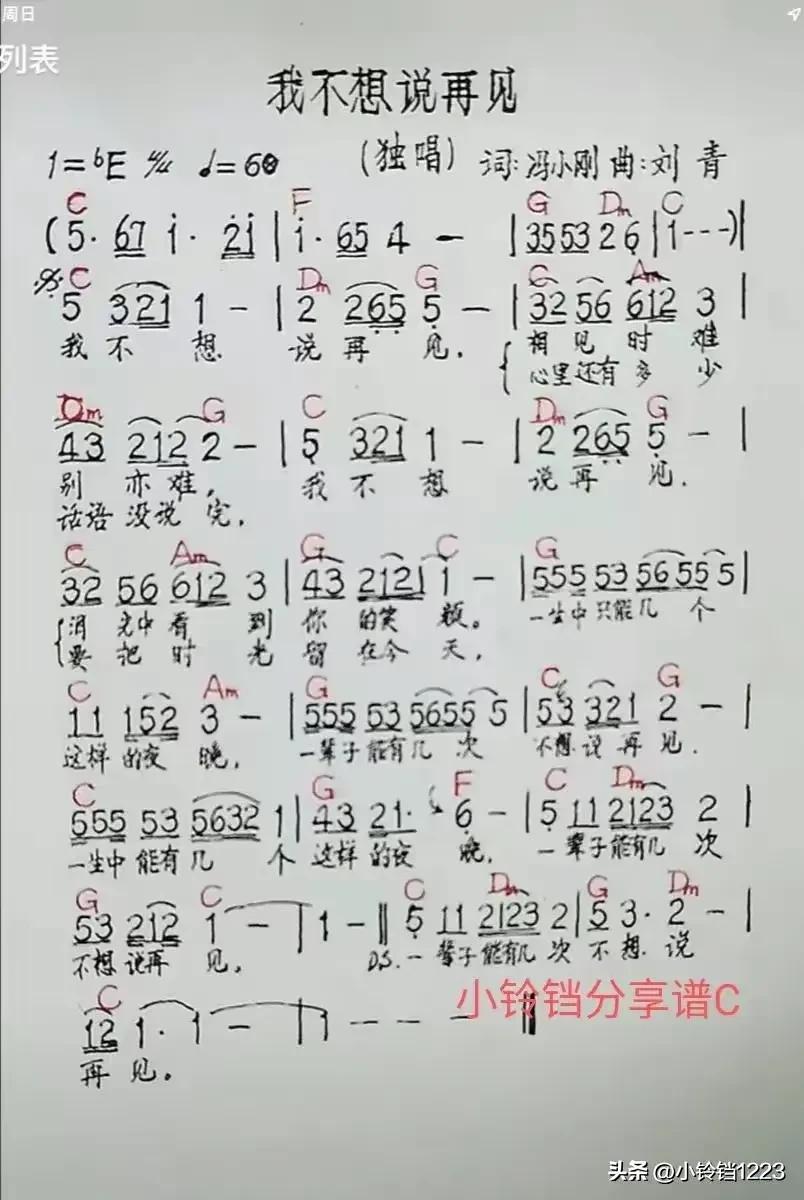 周日
列表
我不想说再见
1=ᵇE 4/4 ♩=68 (独唱) 词:冯小刚 曲:刘青
C F G Dm C
(5· 67 i· 2i | i· 65 4 - | 3553 26 | 1---)|
C Dm G C Am
5 321 1 - | 2 265 5 - | 32 56 612 3 |
我不 想 说再 见. 相见时难
心里还有多少
Dm G C Dm G
43 212 2 - | 5 321 1 - | 2 265 5 - |
别 亦难, 我不 想 说再 见.
话语没说完,
C Am G C G
32 56 612 3 | 43 2121 i - | 555 53 5655 5 |
泪光中看到你的笑颜。 一生中只能几个
要把时光留在今天,
C Am G C G
11 152 3 - | 555 53 5655 5 | 53 321 2 - |
这样的夜晚, 一辈子能有几次 不想说再见.
C G F C Dm
555 53 5632 1 | 43 21· 6 - | 5 11 2123 2 |
一生中能有几个 这样的夜晚, 一辈子能有几次
G C C Dm G Dm
53 212 1 - | 1 - || 5 11 2123 2 | 53· 2 - |
不想说再见. D.S. 一辈子能有几次不想说
小铃铛分享谱C
C
12 1· 1 - | 1 - - - ||
再见。
头条 @小铃铛1223